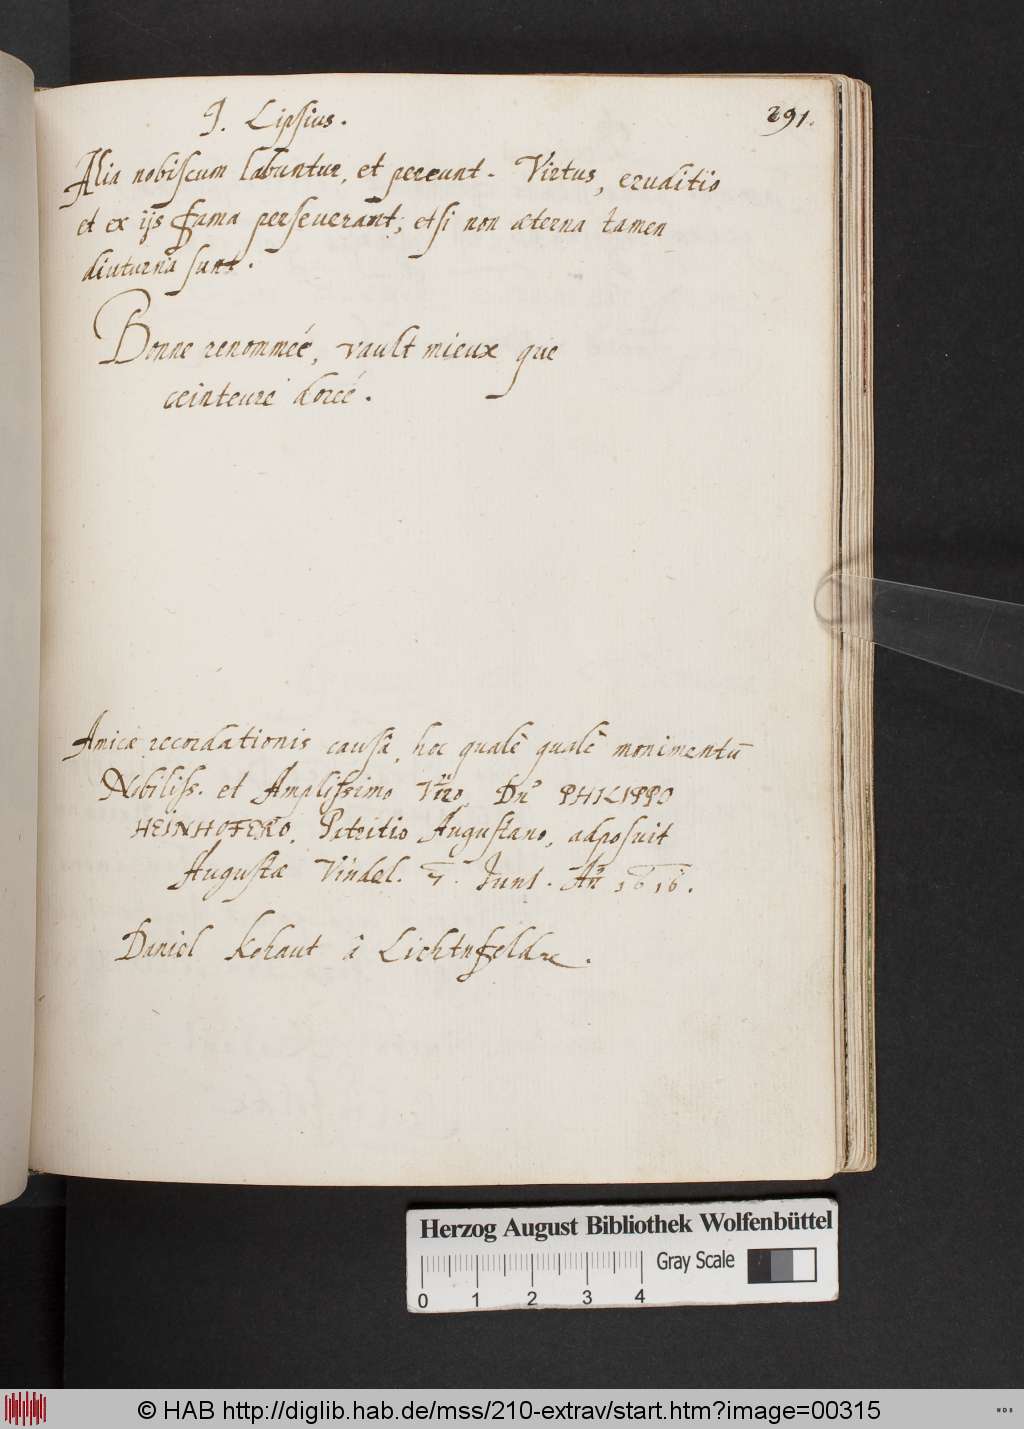 291.
J. Lipsius.
Alia nobiscum labuntur, et pereunt. Virtus, eruditio
et ex ijs fama perseverant; etsi non æterna tamen
diuturna sunt.
Bonne renommeé, vault mieux que
ceinture doreé.
Amicæ recordationis causâ, hoc qualē qualē monimentū
Nobiliss. et Amplissimo Viro, Dn̄o PHILIPPO
HEINHOFERO, Patritio Augustano, adposuit
Augustæ Vindel. 7. Junj. An̄ 1616.
Daniel Kohaut â Lichtnfeld
Herzog August Bibliothek Wolfenbüttel
Gray Scale
0 1 2 3 4
© HAB http://diglib.hab.de/mss/210-extrav/start.htm?image=00315